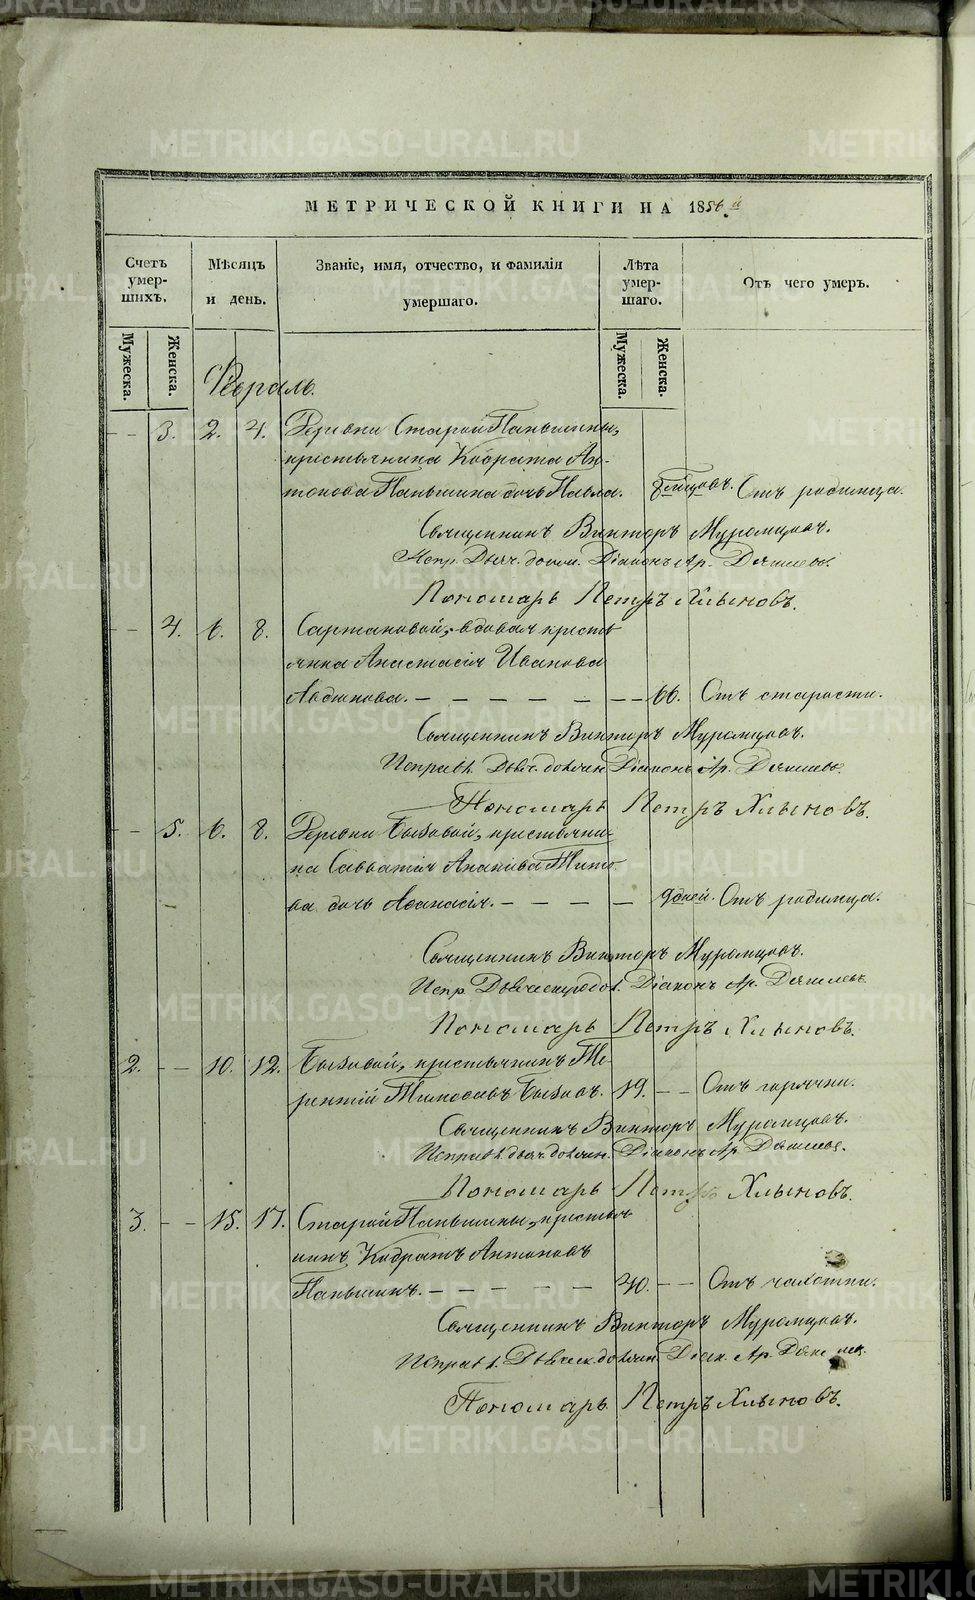 МЕТРИЧЕСКОЙ КНИГИ НА 1856й.
Счетъ умер-шихъ.
Мѣсяцъ и день.
Званіе, имя, отчество, и фамилія умершаго.
Лѣта умер-шаго.
Отъ чего умеръ.
Мужеска. Женска. Мужеска. Женска.
Февраль.
— 3. 2. 4. Деревни Старой Паньшины,
крестьянина Кодрата Ан-
тонова Паньшина дочь Павла. Отъ родимца.
Священникъ Викторъ Муромцовъ.
Испр. Діаконъ Ар.
Пономарь Петръ Хлыновъ.
— 4. 6. 8. вдовая кресть
янка Анастасія Иванова
— — — — — — — 66. Отъ старости.
Священникъ Викторъ Муромцовъ.
Исправл. Діаконъ Ар.
Пономарь Петръ Хлыновъ.
— 5. 6. 8. Деревни Бызовой, крестьяни-
на Савватія Тито
ва дочь Афанасія. — — — — 9 дней. Отъ родимца.
Священникъ Викторъ Муромцовъ.
Испр. Діаконъ Ар.
Пономарь Петръ Хлыновъ.
2. — — 10. 12. Бызовой, крестьянинъ Те-
рентій Тимофеевъ Бызовъ. 19. — — Отъ горячки.
Священникъ Викторъ Муромцовъ.
Исправл. Діаконъ Ар.
Пономарь Петръ Хлыновъ.
3. — — 15. 17. Старой Паньшины, кресть
нинъ Кодратъ Антоновъ
Паньшинъ. — — — — — 40. — — Отъ чахотки.
Священникъ Викторъ Муромцовъ.
Исправл. Діак. Ар.
Пономарь Петръ Хлыновъ.
METRIKI.GASO-URAL.RU